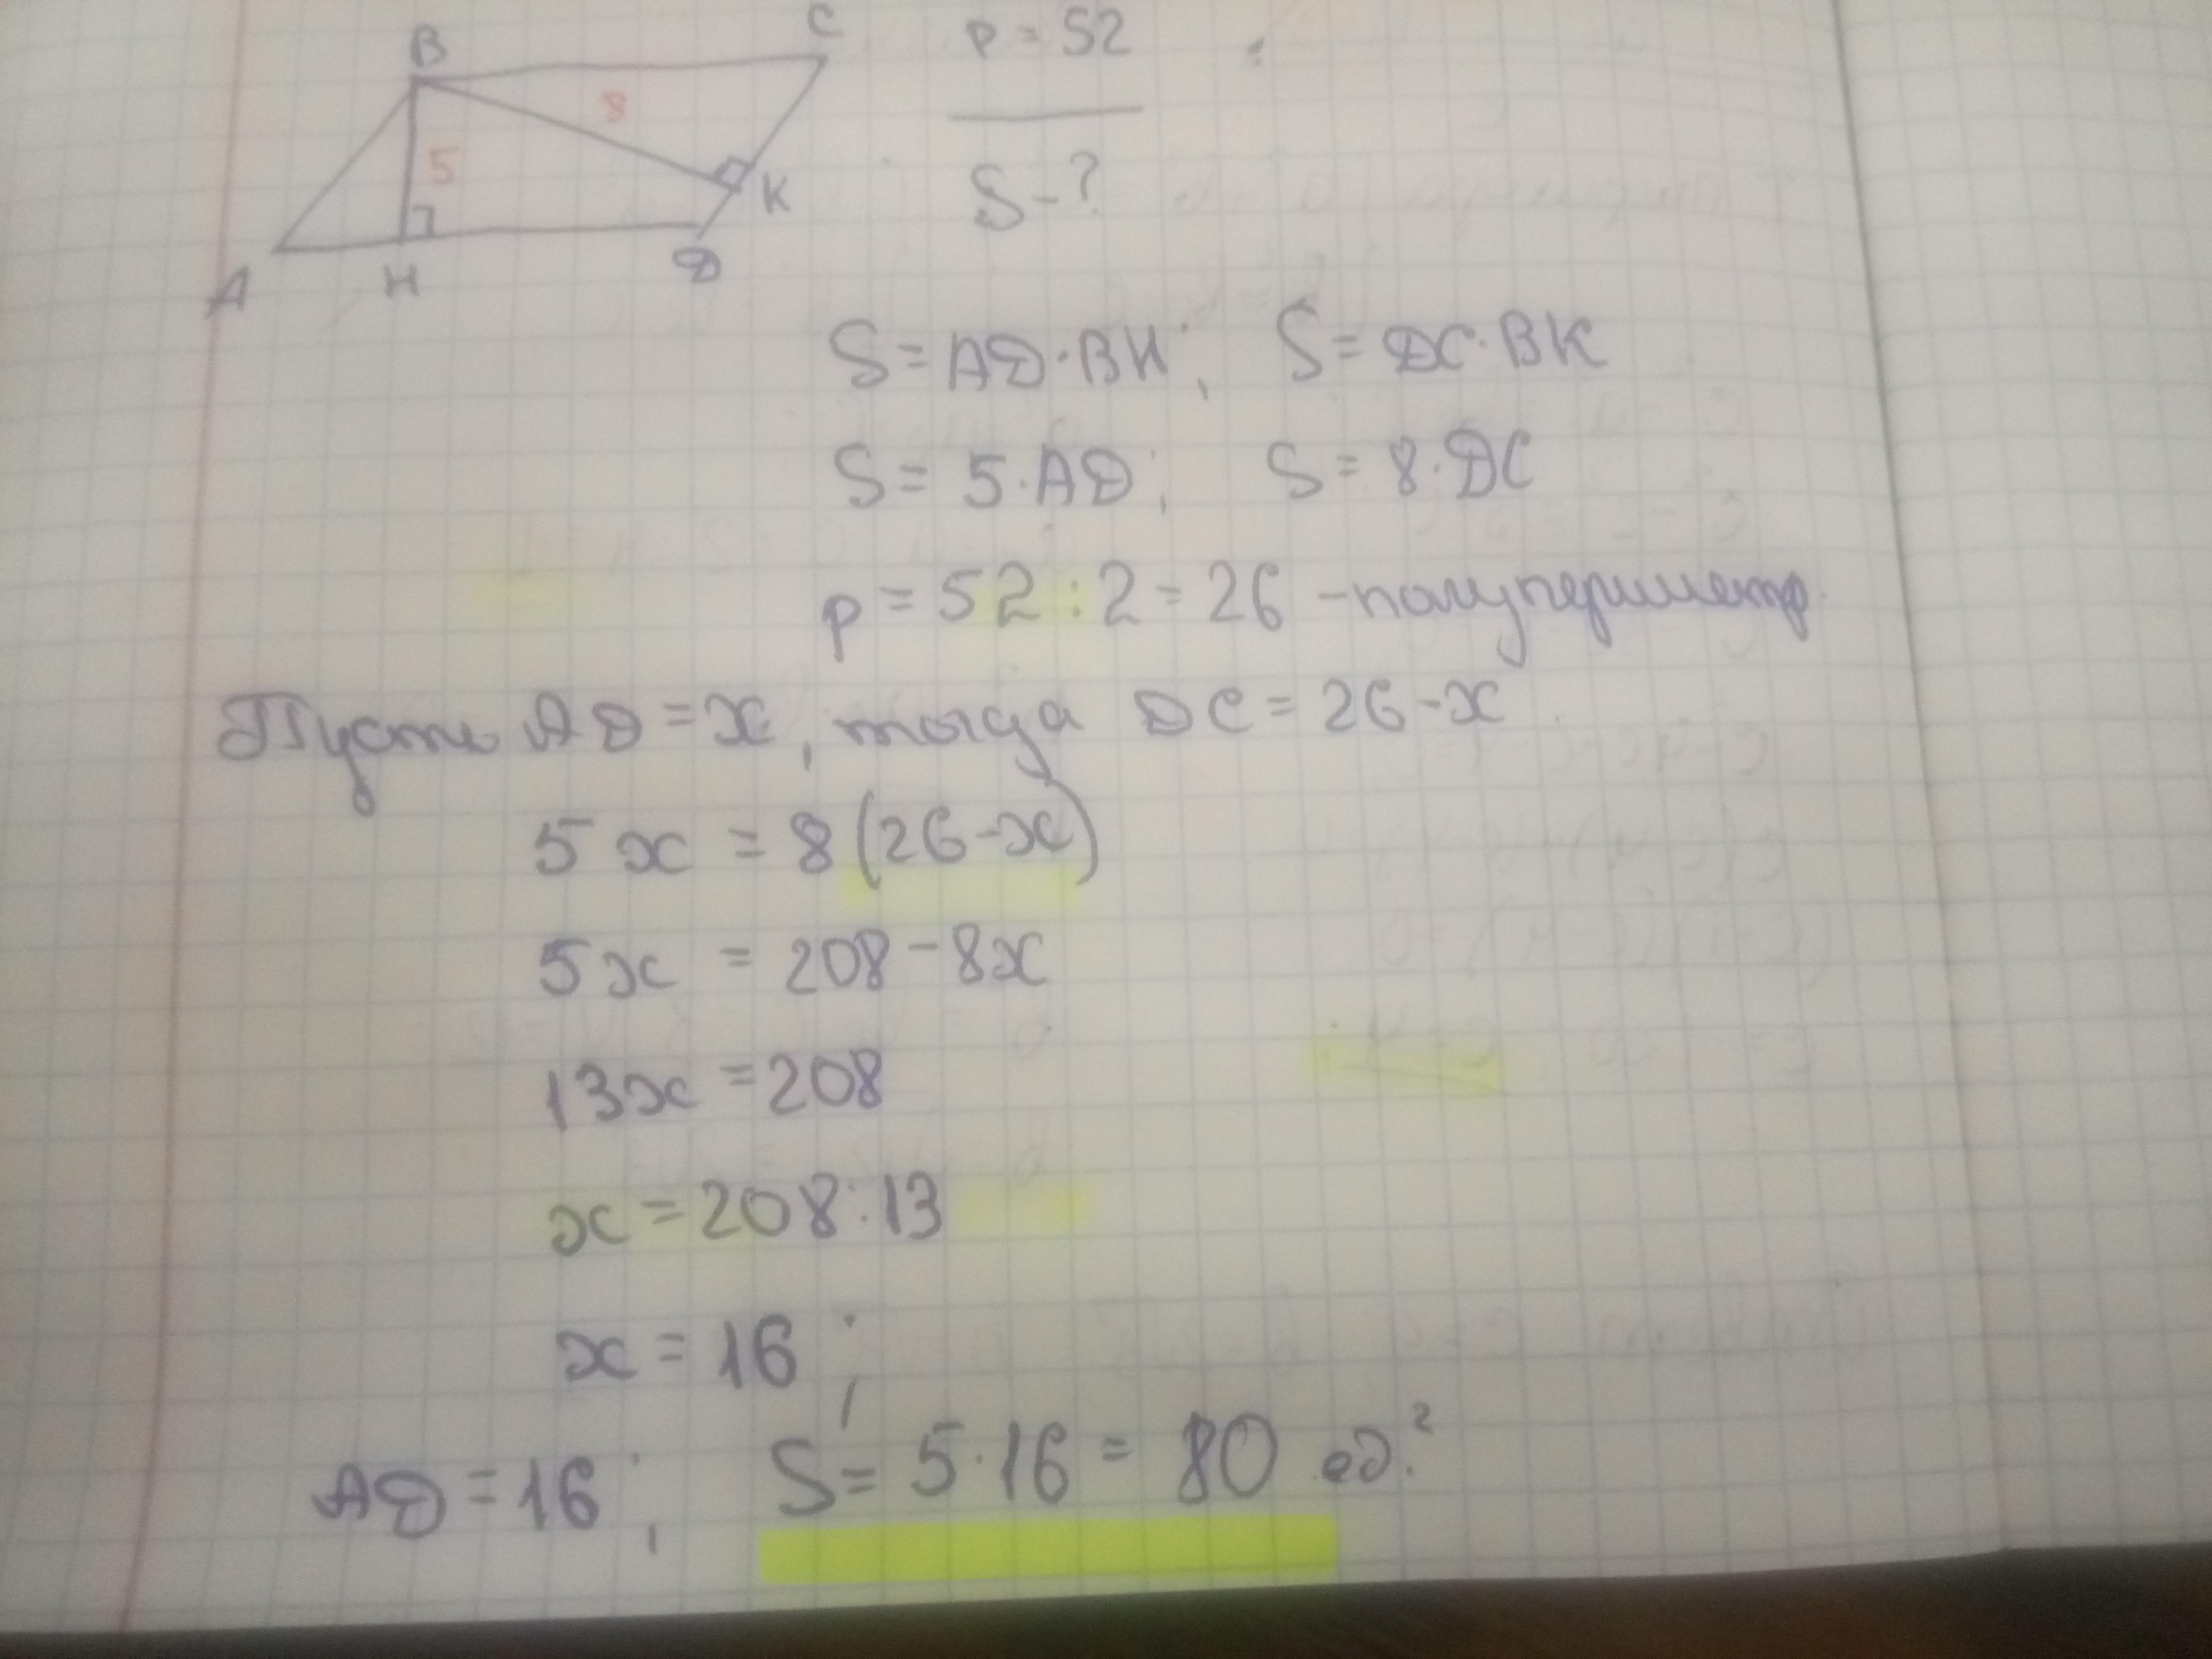 B
C
P = 52
8
5
K
S - ?
A
H
D
S = AD · BH ; S = DC · BK
S = 5 · AD ; S = 8 · DC
p = 52 : 2 = 26 - полупериметр
Пусть AD = x , тогда DC = 26 - x
5x = 8(26-x)
5x = 208 - 8x
13x = 208
x = 208 : 13
x = 16 ;
AD = 16 ; S = 5 · 16 = 80 ед.²